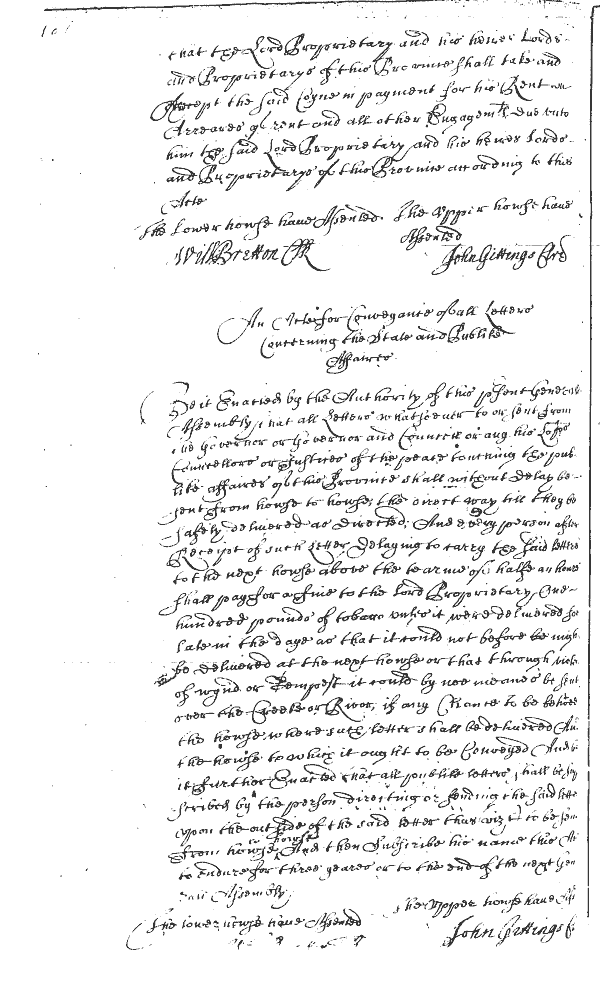 that the Lord Proprietary and his heires Lords
and Proprietarys of this Province shall take and
Accept the said Coyne in payment for his Rent
Arreares of rent and all other Engagemts due unto
him the said Lord Proprietary and his heires Lords
and Proprietarys of this Province according to this
Acte
The Lower howse have Assented. The Upper howse have
Assented
Will Bretton Clk John Gittings Clre
An Acte for Conveyance of all Letters
Concerning the State and Publike
Affaires
Be it Enacted by the Authority of this present Generall
Assembly that all Letters whatsoever to or sent from
the Governor or Governor and Councell or any his Lopps
Councellors or Justices of the peace touching the pub
like affaires of this Province shall without delay be
sent from howse to howse, the direct way till they be
safely delivered as directed, And every person after
Receipt of such Letter delaying to carry the said letters
to the next howse above the tearme of halfe an houre
shall pay for a fine to the Lord Proprietary One
hundred pounds of tobacco unles it were delivered soe
late in the daye as that it could not before be nigh
be delivered at the next howse or that through
of wynd or Tempest it could by noe meanes be sent
over the Creeke or River, if any Chance to be betwee
the howse where such letter shall be delivered And
the howse to which it ought to be Conveyed And be
it further Enacted that all publike letters shall be sup
scribed by the person directing or sending the said lettr
upon the outside of the said letter thus vizt to be sent
from howse to howse And then Subscribe his name this Act
to endure for three yeares or to the end of the next Gen
rall Assembly
The lower howse have Assented The Upper howse have
John Gittings